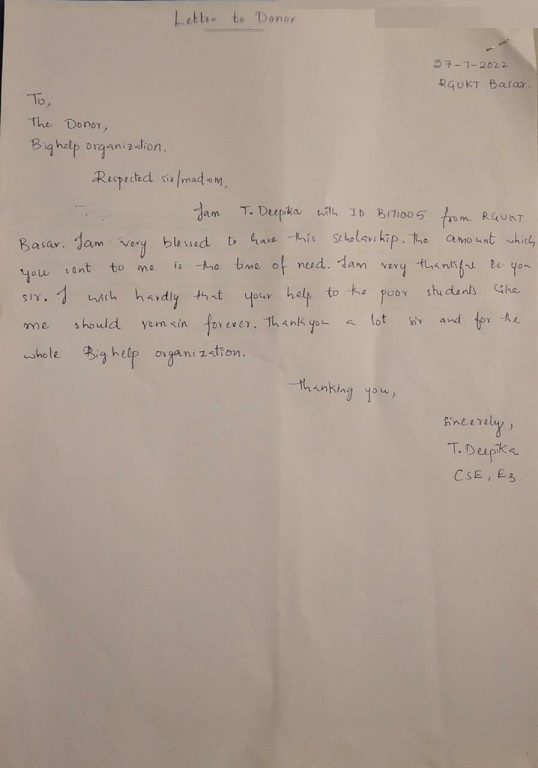 Letter to Donor
27-7-2022
RGUKT Basar.
To,
The Donor,
Bighelp organization.
Respected sir/madam,
Iam T. Deepika with ID B171005 from RGUKT
Basar. Iam very blessed to have this Scholarship. The amount which
you sent to me is the time of need. Iam very thankful to you
sir. I wish hardly that your help to the poor students like
me should remain forever. Thankyou a lot sir and for the
whole Bighelp organization.
Thanking you,
Sincerely,
T. Deepika
CSE, E3.